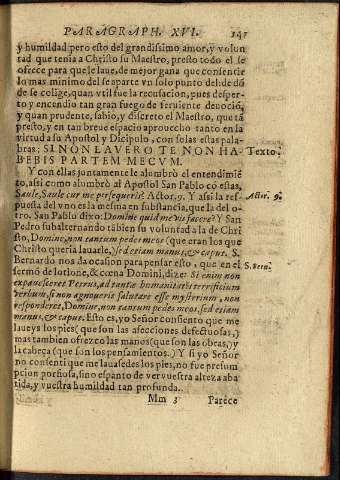 PARAGRAPH. XVI. 141
y humildad pero esto del grandissimo amor, y volun
tad que tenia a Christo su Maestro, presto todo el se
ofrece para que le laue, de mejor gana que consentie
lo mas minimo del se aparte vn solo punto del: de dō
de se colige, quan vtil fue la recusacion, pues desper-
to y encendio tan gran fuego de feruiente deuociō,
y quan prudente, sabio, y discreto el Maestro, que tā
presto, y en tan breue espacio aprouecho tanto en la
virtud a su Apostol y Dicipulo, con solas estas pala-
bras: SI NON LAVERO TE NON HA Texto.
BEBIS PARTEM MECVM.
Y con ellas juntamente le alumbrò el entendimiē
to, assi como alumbrò al Apostol San Pablo cō estas,
Saule, Saule cur me persequeris? Actor. 9. Y assi la res Actor. 9.
puesta del vno es la mesma en substancia, que la del o-
tro. San Pablo dixo: Domine quid me vis facere? Y San
Pedro subalternando tābien su voluntad a la de Chri
sto, Domine, non tantum pedes meos (que eran los que
Christo queria lauarle,) sed etiam manus, & caput. S.
Bernardo nos da ocasion para pensar esto, que en el S. Bern.
sermō de lotione, & cœna Domini, dize: Si enim non
expauesceret Petrus, ad tantæ humanitatis terrificium
verbum, si non agnoueris salutare esse mysterium, non
responderet, Domine, non tantum pedes meos, sed etiam
manus, & caput. Esto es, yo Señor consiento que me
laueys los pies (que son las afecciones defectuosas,)
mas tambien ofrezco las manos (que son las obras,) y
la cabeça (que son los pensamientos.) Y si yo Señor
no consenti que me lauasedes los pies, no fue presum
pcion porfiosa, sino espanto de ver vuestra alteza aba
tida, y vuestra humildad tan profunda.
Mm 3 Parece